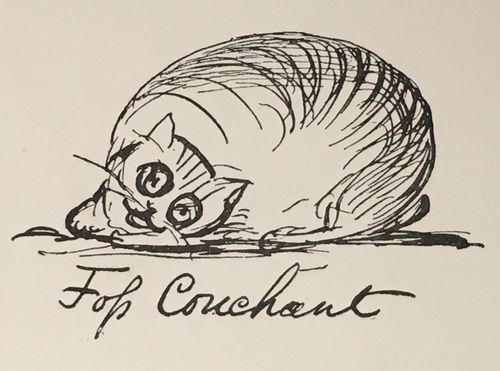 Foſs Couchant